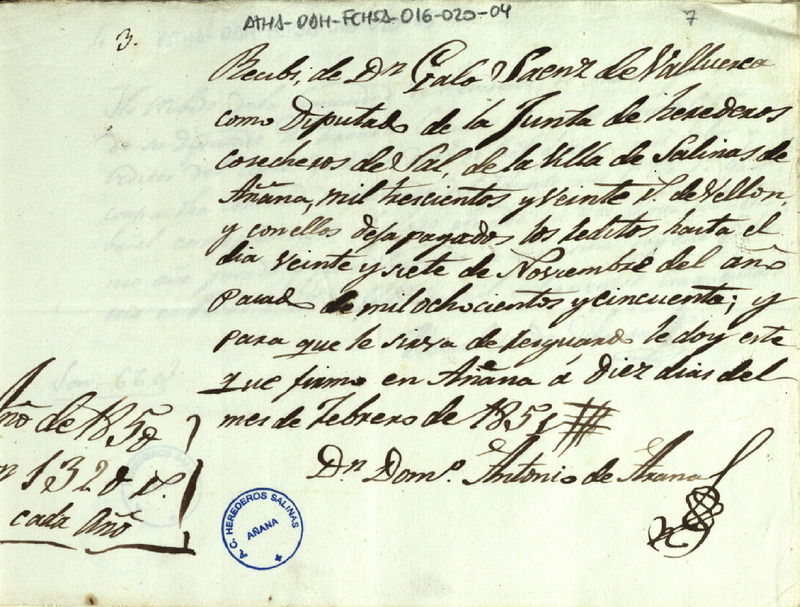 ATHA-DAH-FCHSA-016-020-04
7
3.
Recibi, de Dn Galo Saenz de Valluerca
como Diputado de la Junta de herederos
cosecheros de Sal, de la Villa de Salinas de
Añana, mil trescientos y veinte r. de Vellon,
y con ellos deja pagados los reditos hasta el
dia veinte y siete de Noviembre del año
pasado de mil ochocientos y cincuenta; y
para que le sirva de resguardo le doy este
que firmo en Añana á Diez dias del
mes de Febrero de 1851
Dn Domo. Antonio de Arana
Año de 1850
1320 r.
cada Año
A. C. HEREDEROS SALINAS
AÑANA
Son 660